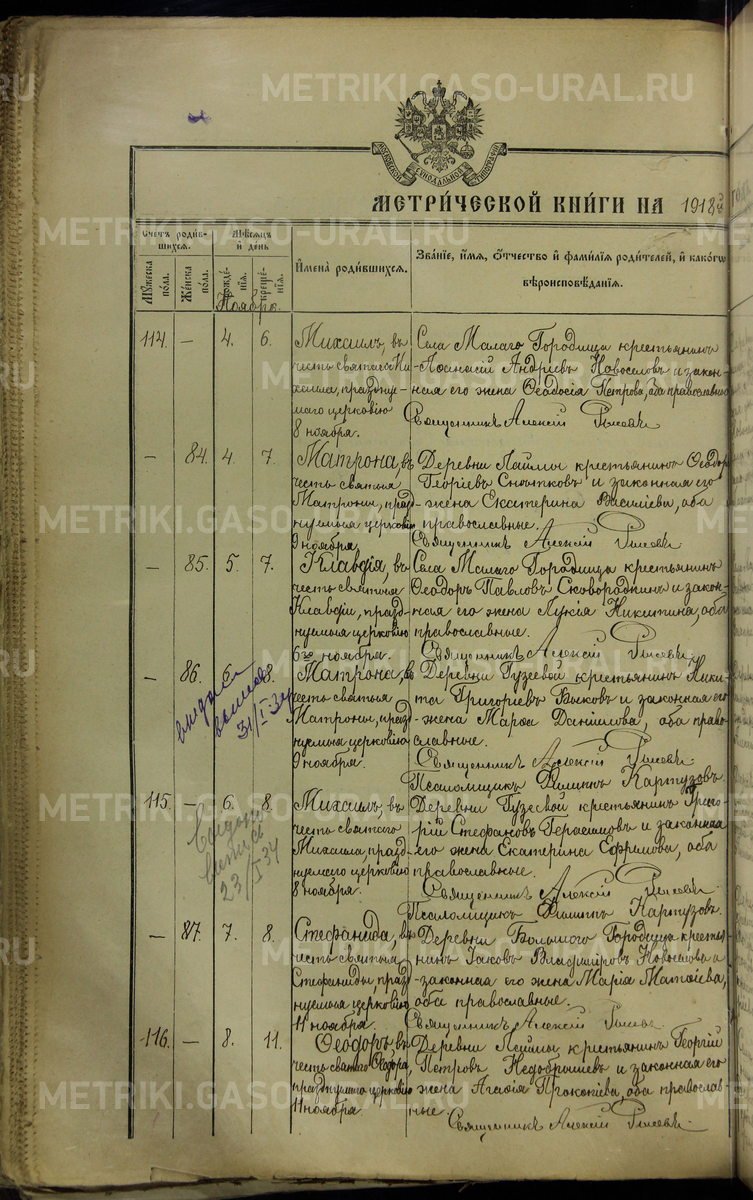 METRIKI.GASO-URAL.RU
МОСКОВСКОЙ СѴНОДАЛЬНОЙ ТИПОГРАФІИ
МЕТРИ́ЧЕСКОЙ КНИ́ГИ НА 1918й
Счетъ роди́вшихся.
Мꙋ́жеска по́ла.
Же́нска по́ла.
Мѣ́сяцъ и҆ де́нь
рожде́нїѧ.
креще́нїѧ.
Ноябрь.
И҆мена̀ роди́вшихся.
Зва́нїе, и҆́мѧ, ѻ҆́тчество и҆ фами́лїѧ роди́телей, и҆ како́гѡ вѣроисповѣ́данїѧ.
114. — 4. 6.
Михаилъ, въ
честь святаго Ми-
хаила, празднуе-
маго церковію
8 ноября.
Села Малаго Городища крестьянинъ
Аѳанасій Андреевъ Новоселовъ и закон-
ная его жена Ѳеодосія Петрова, оба православные
Священникъ Алексій
— 84. 4. 7.
Матрона, въ
честь святыя
Матроны, празд-
нуемыя церковію
9 ноября.
Деревни Лаймы крестьянинъ Ѳеодоръ
Георгіевъ и законная его
жена Екатерина Васильева, оба
православные.
Священникъ Алексій
— 85. 5. 7.
Клавдія, въ
честь святыя
Клавдіи, празд-
нуемыя церковію
6го ноября.
Села Малаго Городища крестьянинъ
Ѳеодоръ Павловъ Сковороднинъ и закон-
ная его жена Лукія Никитина, оба
православные.
Священникъ Алексій
— 86. 6. 8.
выдана
выпись
31/I-34
Матрона, въ
честь святыя
Матроны, празд-
нуемыя церковію
9 ноября.
Деревни Гузеевой крестьянинъ Ники-
та Григорьевъ Быковъ и законная его
жена Марѳа Даніилова, оба право-
славные.
Священникъ Алексій
Псаломщикъ Филиппъ Картузовъ
115. — 6. 8.
23/I 34
Михаилъ, въ
честь святаго
Михаила, празд-
нуемаго церковію
8 ноября.
Деревни Гузеевой крестьянинъ Григо-
рій Стефановъ Герасимовъ и законная
его жена Екатерина Ефримова, оба
православные.
Священникъ Алексій
Псаломщикъ Филиппъ Картузовъ.
— 87. 7. 8.
Стефанида, въ
честь святыя
Стефаниды, празд-
нуемыя церковію
11 ноября.
Деревни Большого Городища крестья-
нинъ Іаковъ Владиміровъ Новоселовъ и
законная его жена Марія Матѳіева,
оба православные.
Священникъ Алексій
116. — 8. 11.
Ѳеодоръ, въ
честь святаго Ѳеодора,
празднуемаго церковію
11 ноября.
Деревни Лаймы крестьянинъ Георгій
Петровъ Недобрышевъ и законная его
жена Агаѳія Прокопіева, оба православ-
ные.
Священникъ Алексій